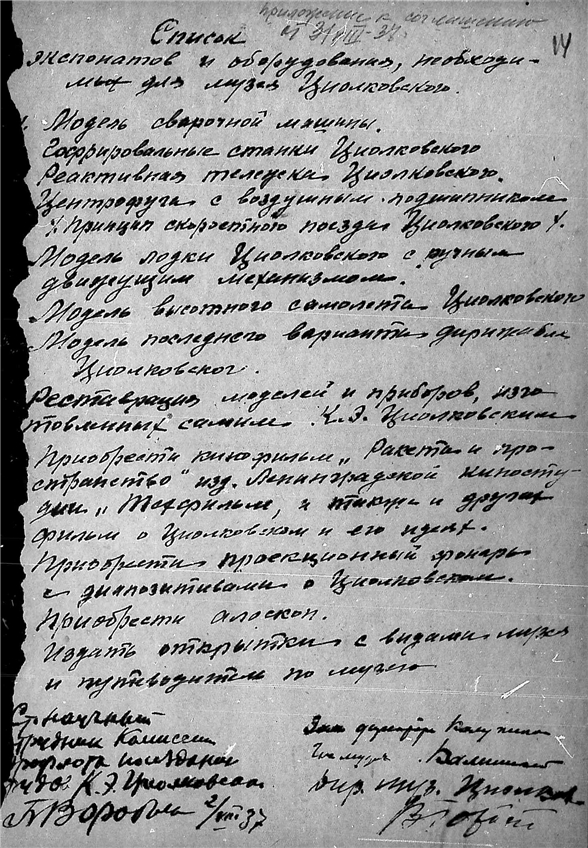 приложение к соглашению
от 31/III-37.
14
Список
экспонатов и оборудования, необходи-
мых для музея Циолковского.
1. Модель сварочной машины.
Гофрировальные станки Циолковского
Реактивная тележка Циолковского.
Центрофуга с воздушным подшипником
Принцип скоростного поезда Циолковского
Модель лодки Циолковского с ручным
движущим механизмом.
Модель высотного самолета Циолковского
Модель последнего варианта дирижабля
Циолковског.
Реставрация моделей и приборов, изго
товленных самим К.Э. Циолковским
Приобрести кинофильм „Ракета и про-
странство" изд. Ленинградской киносту-
дии „Техфильм, а также и других
фильм о Циолковском и его идеях.
Приобрести проекционный фонарь
с диапозитивами о Циолковском.
Приобрести алоскоп.
Издать открытки с видами музея
и путеводитель по музею
Ст. научный
Комиссии
К.Э. Циолковск
Воробьев 2/VIII 37
Зам директор
Гос музея
Дир. муз. Циолков